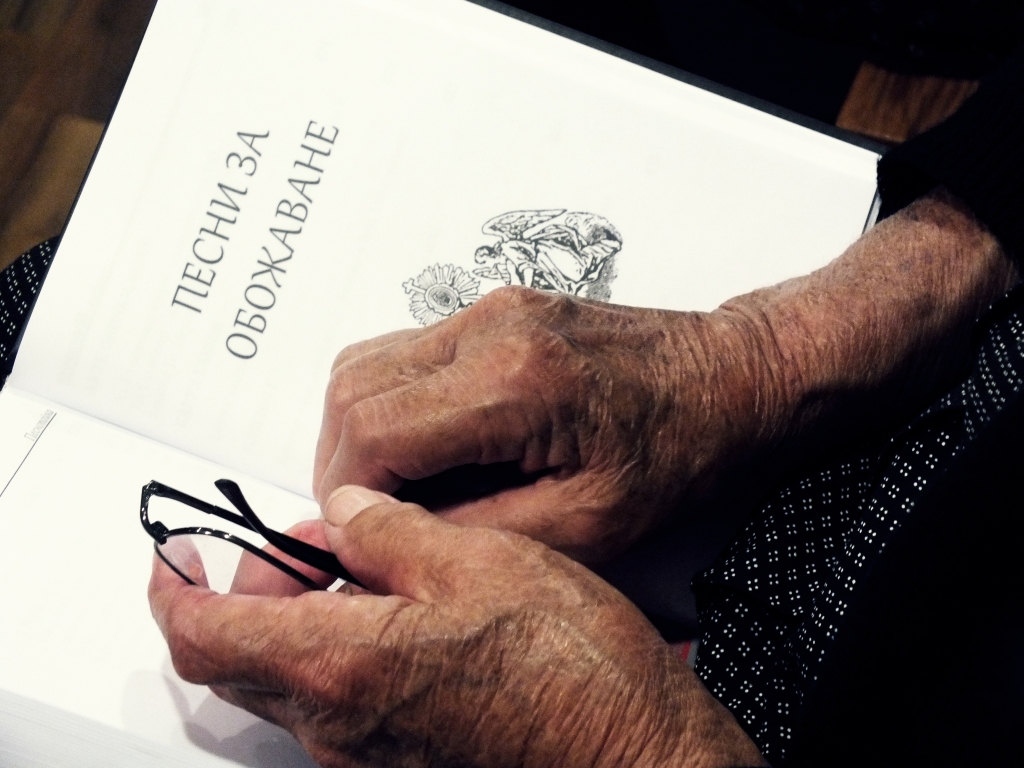 ПЕСНИ ЗА
ОБОЖАВАНЕ